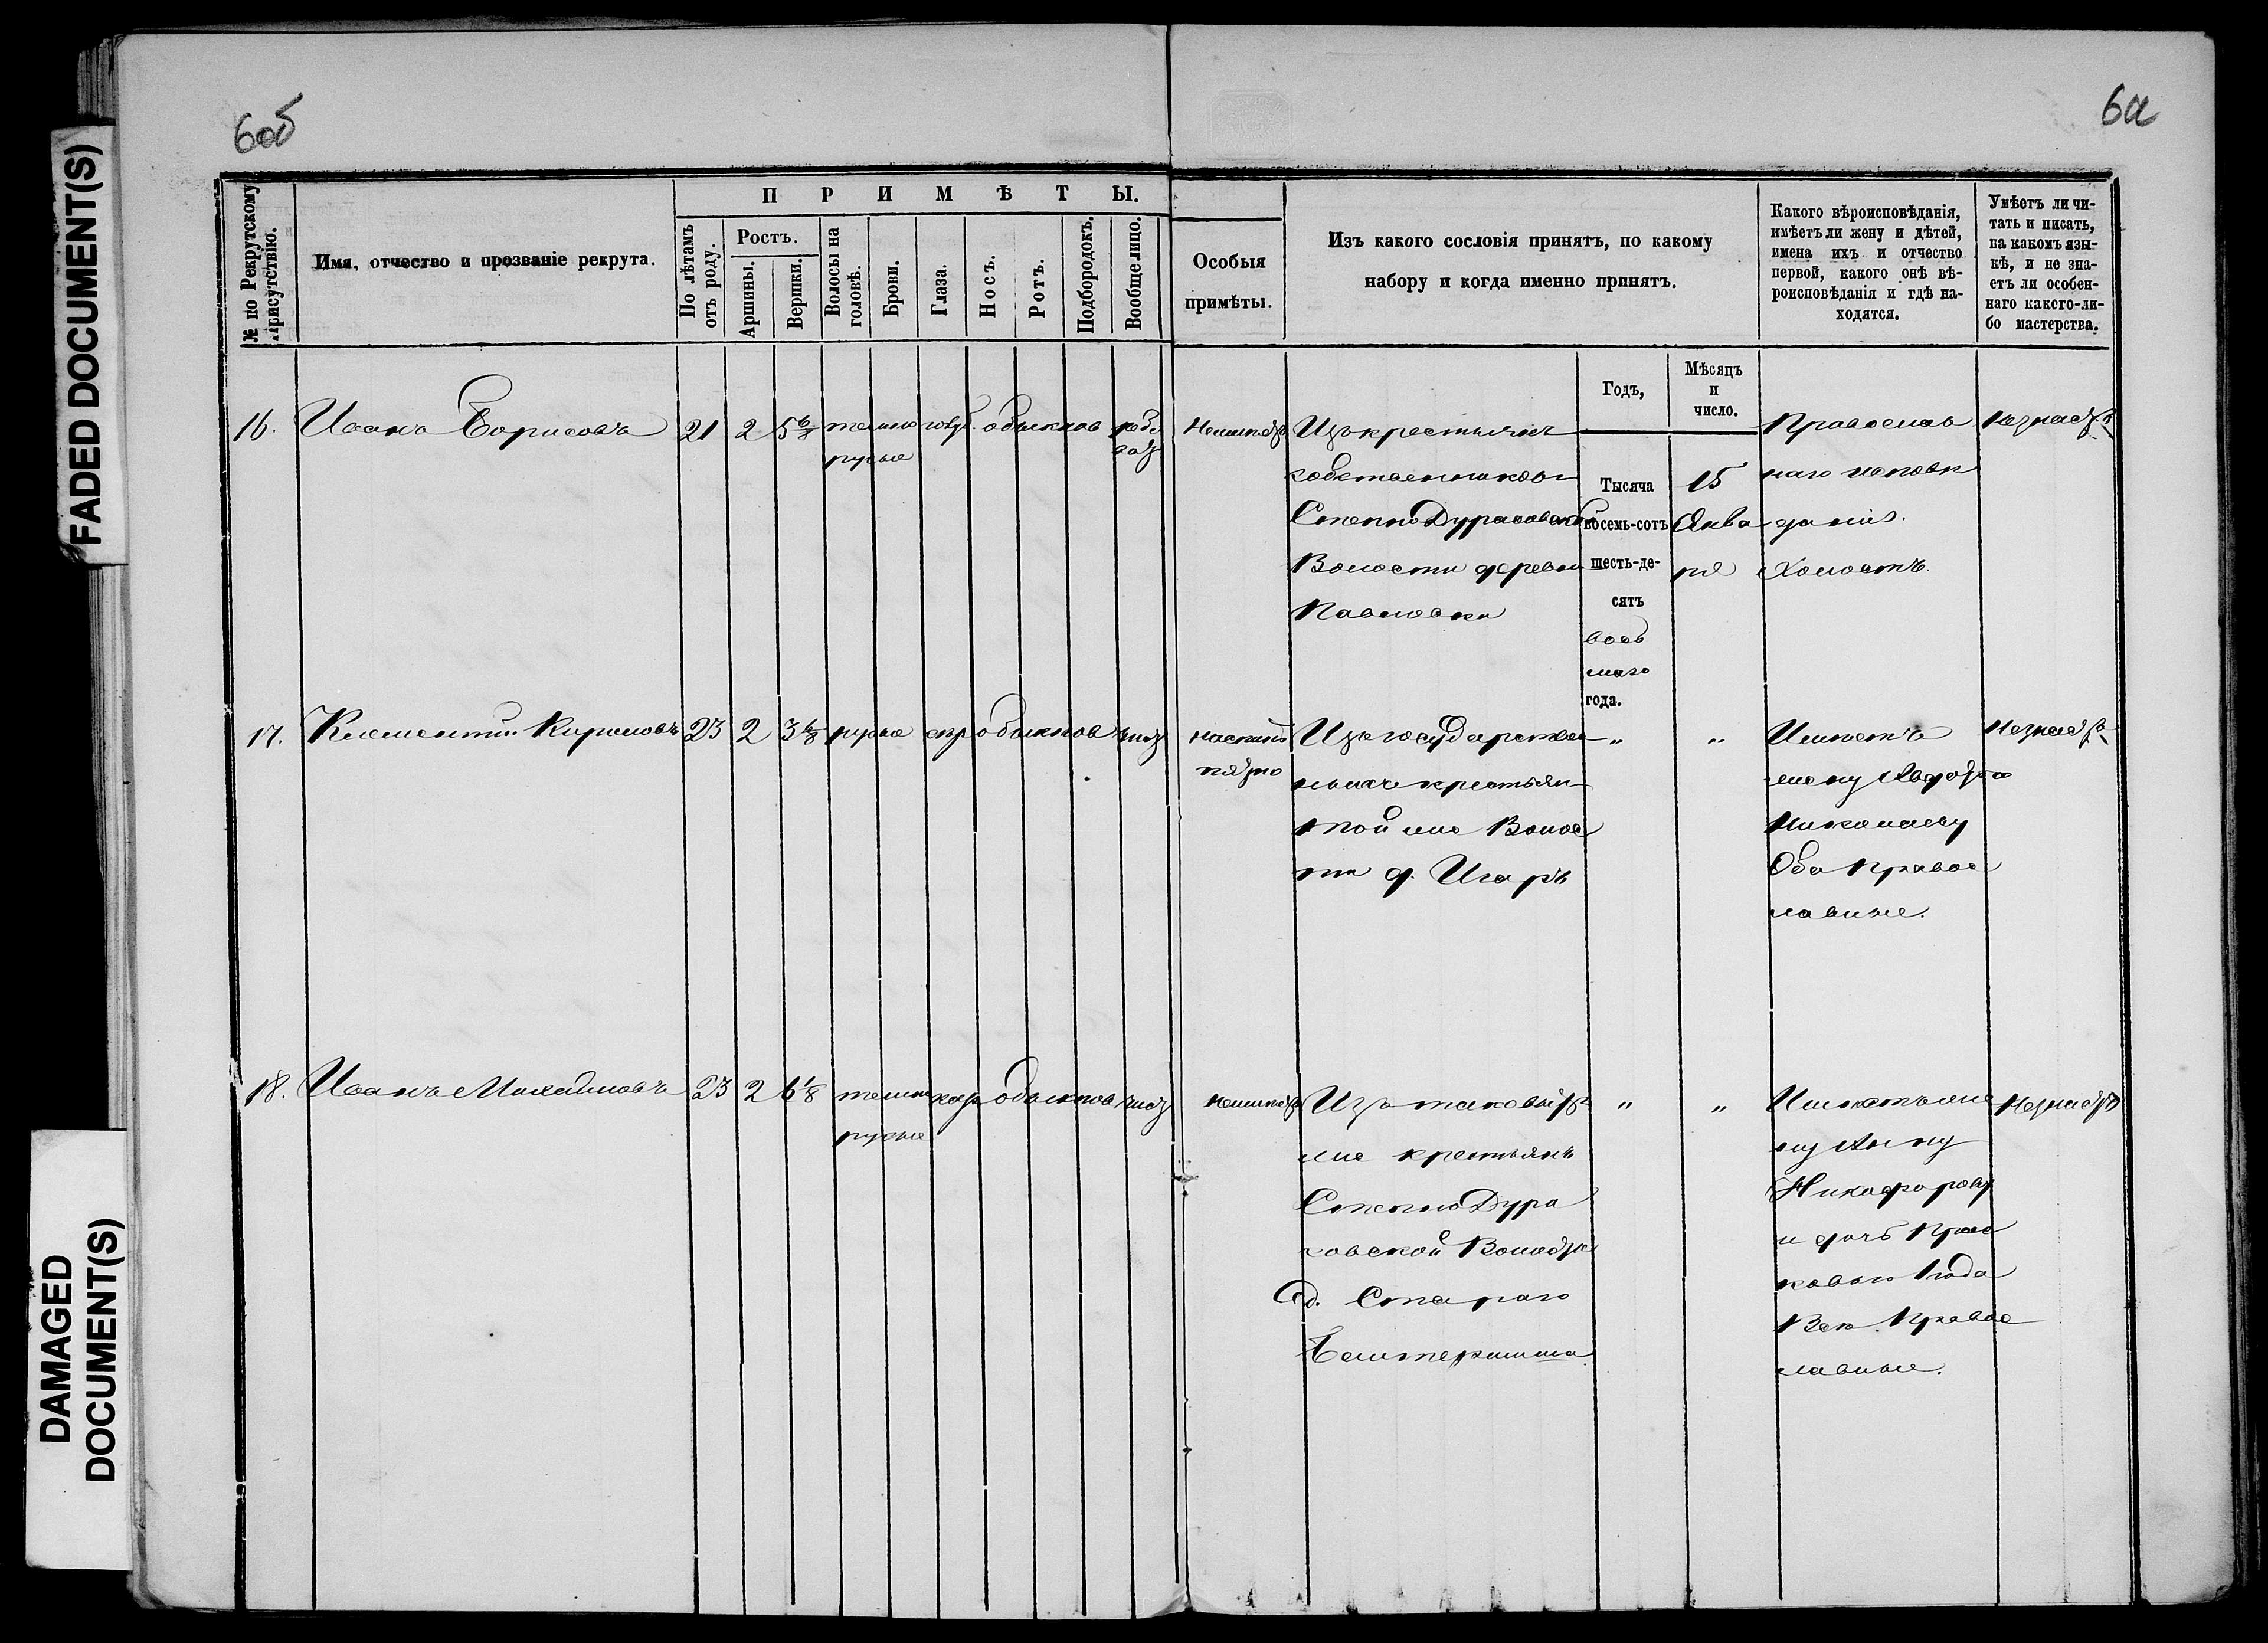 FADED DOCUMENT(S)
DAMAGED
DOCUMENT(S)
6об
6а
№ по Рекрутскому
Присутствію.
Имя, отчество и прозваніе рекрута.
ПРИМѢТЫ.
По лѣтамъ
отъ роду.
Ростъ.
Аршины.
Вершки.
Волосы на
головѣ.
Брови.
Глаза.
Носъ.
Ротъ.
Подбородокъ.
Вообще лицо.
Особыя
примѣты.
Изъ какого сословія принятъ, по какому
набору и когда именно принятъ.
Какого вѣроисповѣданія,
имѣетъ ли жену и дѣтей,
имена ихъ и отчество
первой, какого онѣ вѣ-
роисповѣданія и гдѣ на-
ходятся.
Умѣетъ ли чи-
тать и писать,
на какомъ язы-
кѣ, и не зна-
етъ ли особен-
наго какого-ли-
бо мастерства.
Годъ,
Мѣсяцъ
и
число.
16. Иванъ Борисовъ 21 2 5 6/8 темно голуб. обыкнов
русые
Изъ крестьянъ
собственниковъ
Степно Дурасовской
Волости деревни
Павловки
Тысяча
восемь-сотъ
шесть-де-
сятъ
вось
маго
года.
15
Янва
ря
Православ
наго исповѣ
данія.
Холостъ.
Незнаетъ
17. Клементій Кириловъ 23 2 3 6/8 русые сѣр обыкнов чист
на спинѣ
пятно
Изъ государствен
ныхъ крестьян
той же Волос
ти д.
„ „
Имѣетъ
жену
Николаеву
Оба Правос
лавные.
Незнаетъ
18. Иванъ Михайловъ 23 2 6 1/8 темно кар обыкнов чист
русые
Неимѣетъ
Изъ таковыхъ
же крестьянъ
Степно Дура
совской Волости
д. Стараго
„ „
Имѣетъ же
ну Анну
Никифорову
и дочь Прас
ковью 1 года
Всѣ Правос
лавные.
Незнаетъ